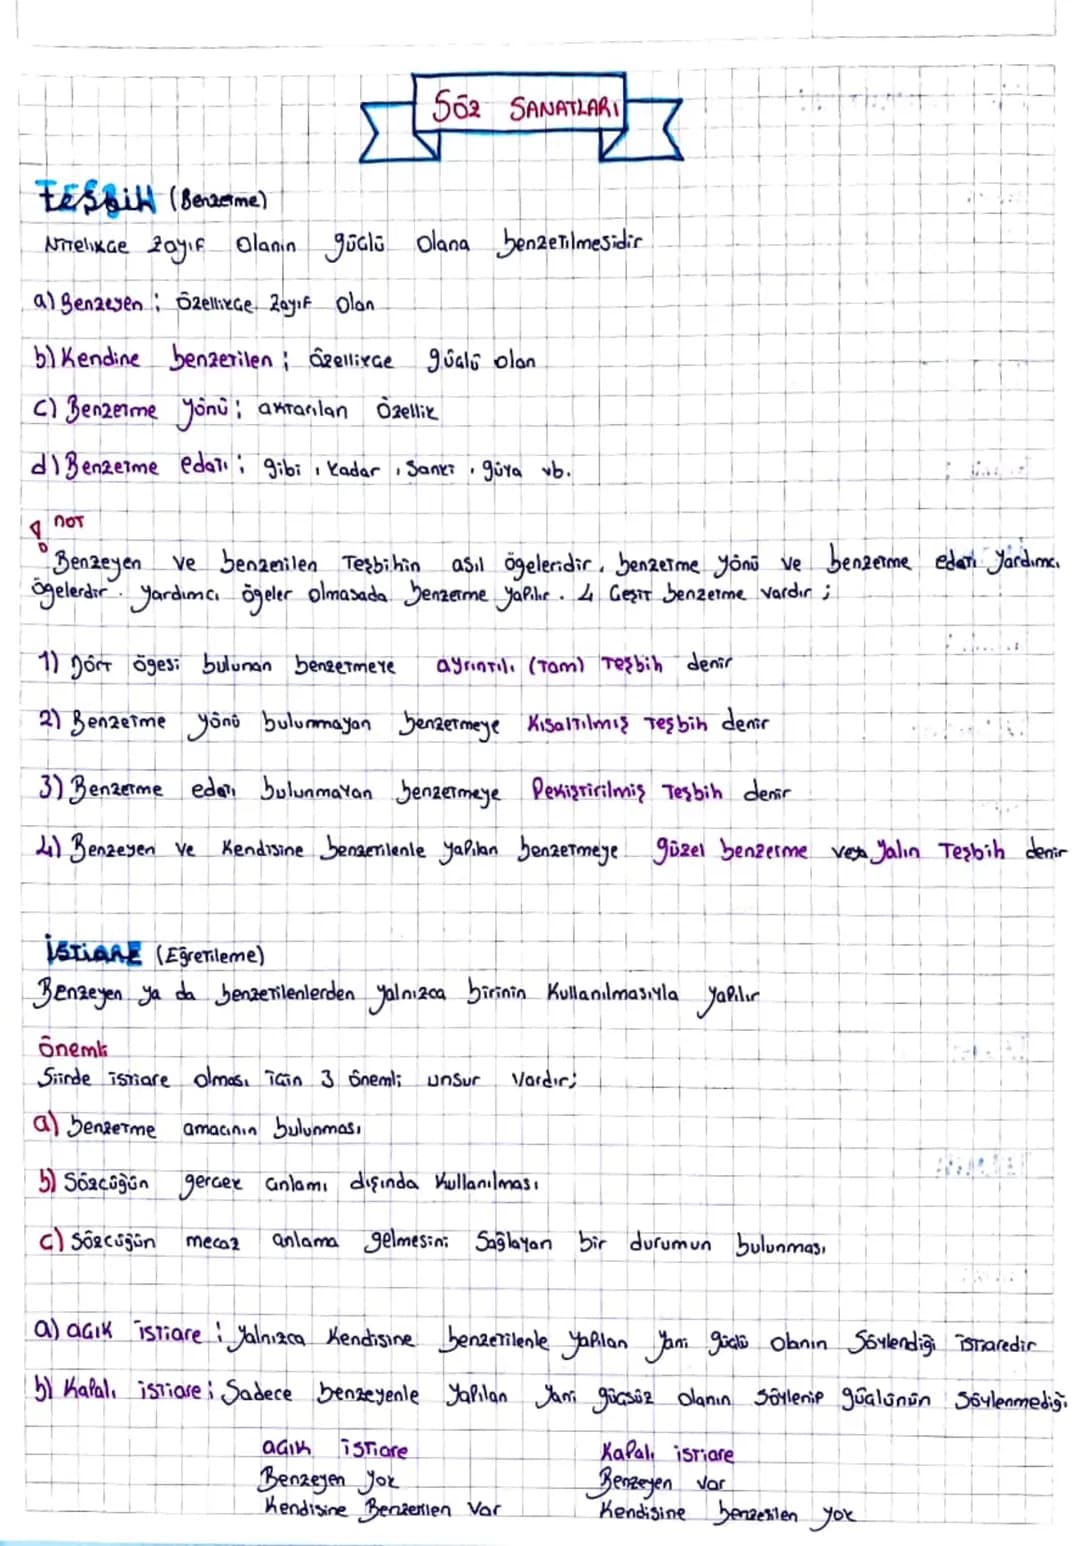 SÖZ SANATLARI
TEŞBİH (Benzetme)
Nitelikçe zayıf olanın güçlü olana benzetilmesidir
a) Benzeyen ; özellikçe zayıf olan
b) Kendine benzetilen ; özellikçe güçlü olan
c) Benzetme yönü ; aktarılan özellik
d) Benzetme edatı ; gibi , kadar , sanki , güya vb.
not
Benzeyen ve benzetilen Teşbihin asıl ögeleridir, benzetme yönü ve benzetme edatı yardımcı
ögelerdir. Yardımcı ögeler olmasada benzetme yapılır. 4 Çeşit benzetme vardır ;
1) Dört ögesi bulunan benzetmeye ayrıntılı (Tam) Teşbih denir
2) Benzetme yönü bulunmayan benzetmeye Kısaltılmış Teşbih denir
3) Benzetme edatı bulunmayan benzetmeye Pekiştirilmiş Teşbih denir
4) Benzeyen ve Kendisine benzetilenle yapılan benzetmeye güzel benzetme veya Yalın Teşbih denir
İSTİARE (Eğretileme)
Benzeyen ya da benzetilenlerden yalnızca birinin kullanılmasıyla yapılır
önemli
Şiirde istiare olması için 3 önemli unsur vardır;
a) benzetme amacının bulunması
b) Sözcüğün gerçek anlamı dışında kullanılması
c) Sözcüğün mecaz anlama gelmesini sağlayan bir durumun bulunması
a) açık istiare ; Yalnızca Kendisine benzetilenle yapılan yani güçlü olanın Söylendiği istiaredir
b) Kapalı istiare ; Sadece benzeyenle yapılan yani güçsüz olanın söylenip güçlünün söylenmediği
açık istiare
Benzeyen yok
Kendisine Benzetilen var
Kapalı istiare
Benzeyen var
Kendisine benzetilen yok